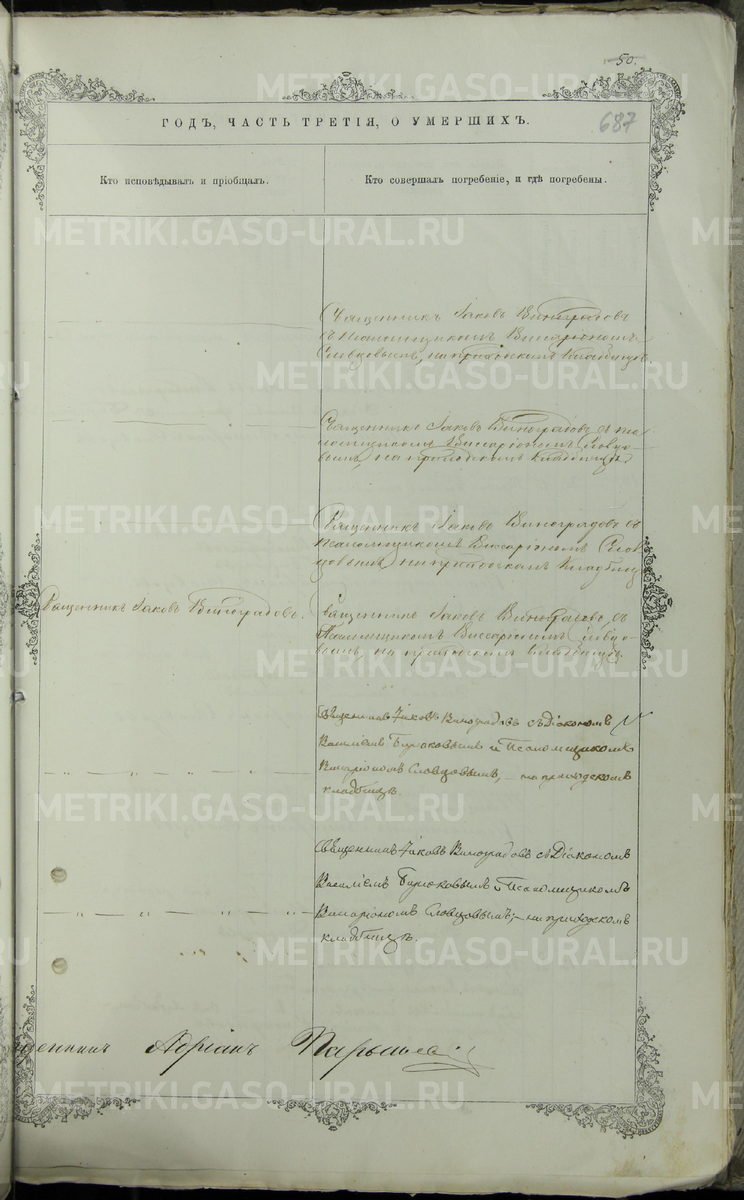 50.
687
ГОДЪ, ЧАСТЬ ТРЕТІЯ, О УМЕРШИХЪ.
Кто исповѣдывалъ и пріобщалъ.
Кто совершалъ погребеніе, и гдѣ погребены.
Священникъ Іаковъ Виноградовъ
съ псаломщикомъ Виссаріономъ
Словцовымъ, на приходскомъ кладбищѣ
Священникъ Іаковъ Виноградовъ съ пса-
ломщикомъ Виссаріономъ Словцо-
вымъ, на приходскомъ кладбищѣ
Священникъ Іаковъ Виноградовъ съ
псаломщикомъ Виссаріономъ Слов-
цовымъ, на приходскомъ кладбищѣ
Священникъ Іаковъ Виноградовъ.
Священникъ Іаковъ Виноградовъ съ
Псаломщикомъ Виссаріономъ Словцо-
вымъ, на приходскомъ кладбищѣ.
Священникъ Іаковъ Виноградовъ съ Діакономъ
Василіемъ Бирюковымъ и Псаломщикомъ
Словцовымъ, – на приходскомъ
кладбищѣ.
Священникъ Іаковъ Виноградовъ съ Діакономъ
Василіемъ Бирюковымъ и Псаломщикомъ
Словцовымъ, – на приходскомъ
кладбищѣ.
щенникъ Адріанъ
METRIKI.GASO-URAL.RU